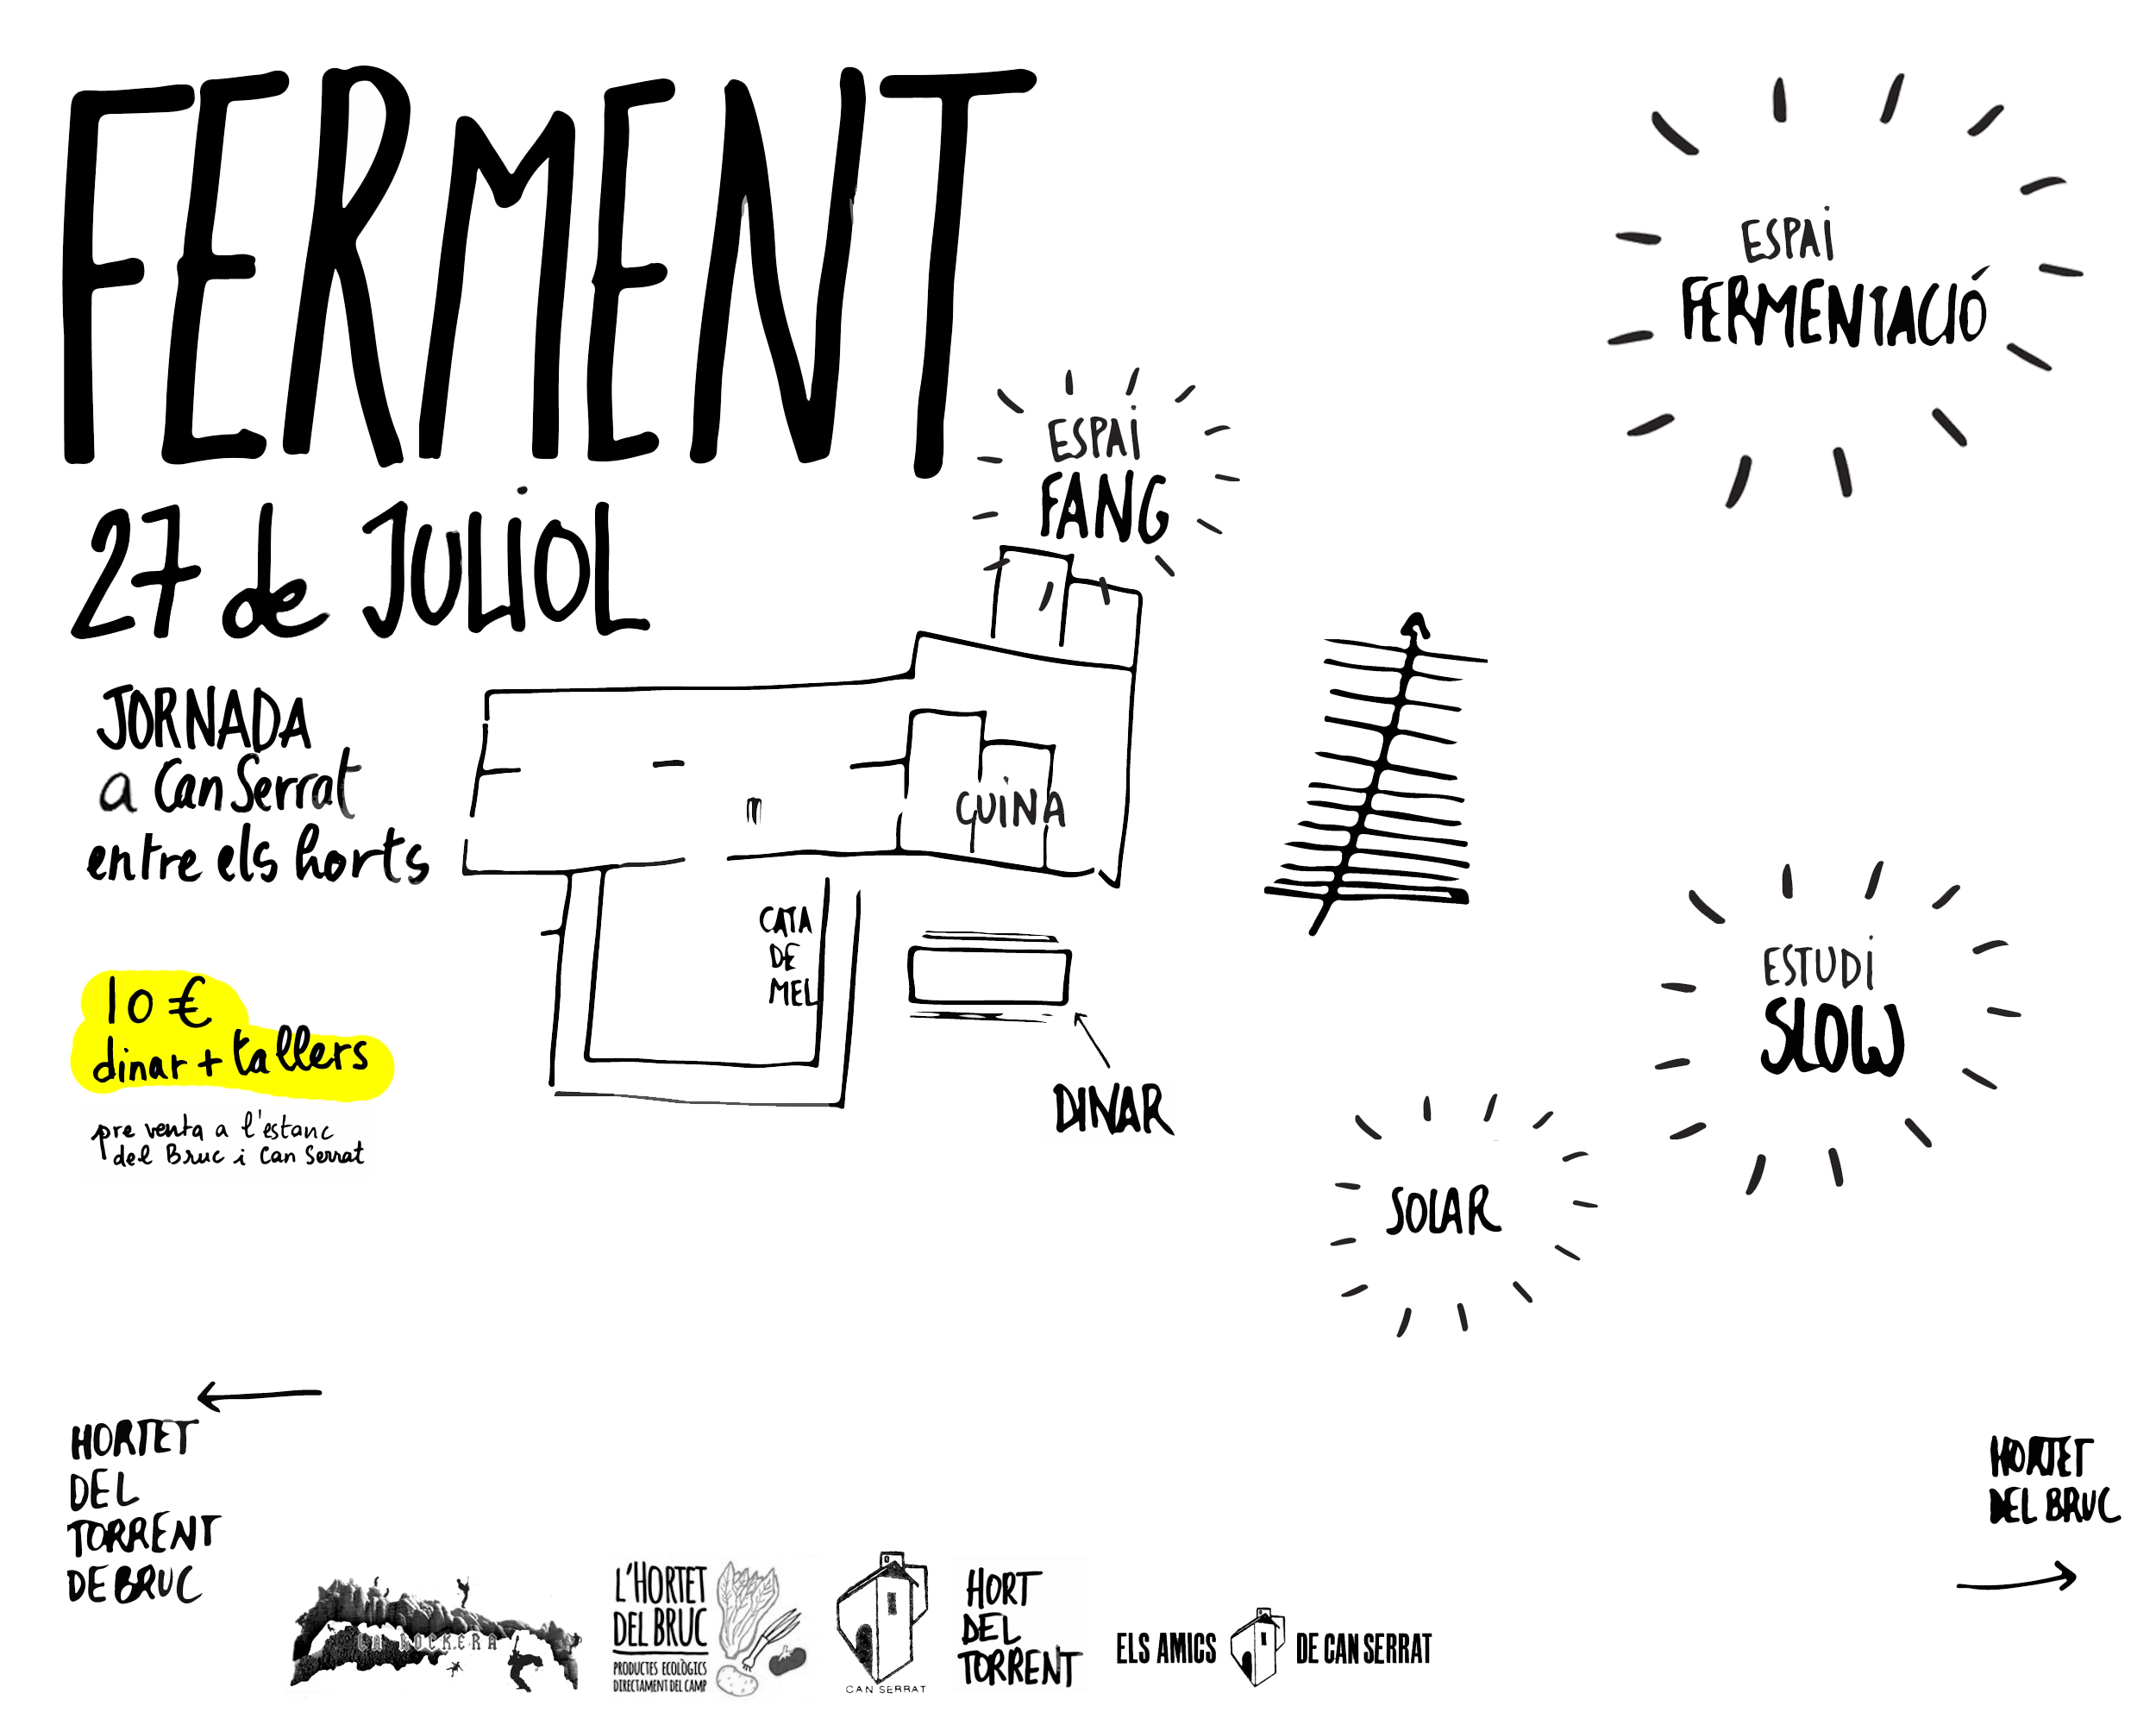 FERMENT
27 de JULIOL
JORNADA
a Can Serrat
entre els horts
10 €
dinar + tallers
pre venta a l'estanc
del Bruc i Can Serrat
ESPAI
FANG
ESPAI
FERMENTACIÓ
CUINA
CATA
DE
MEL
DINAR
ESTUDI
SLOW
SOLAR
HORTET
DEL
TORRENT
DE BRUC
HORTET
DEL BRUC
LA ROCKERA
L'HORTET
DEL BRUC
PRODUCTES ECOLÒGICS
DIRECTAMENT DEL CAMP
CAN SERRAT
HORT
DEL
TORRENT
ELS AMICS DE CAN SERRAT